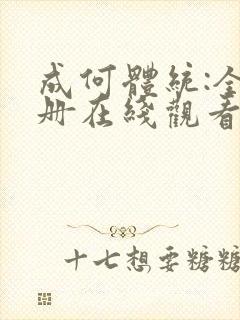 成何體統:全
册在綫觀看
十七想要糖糖